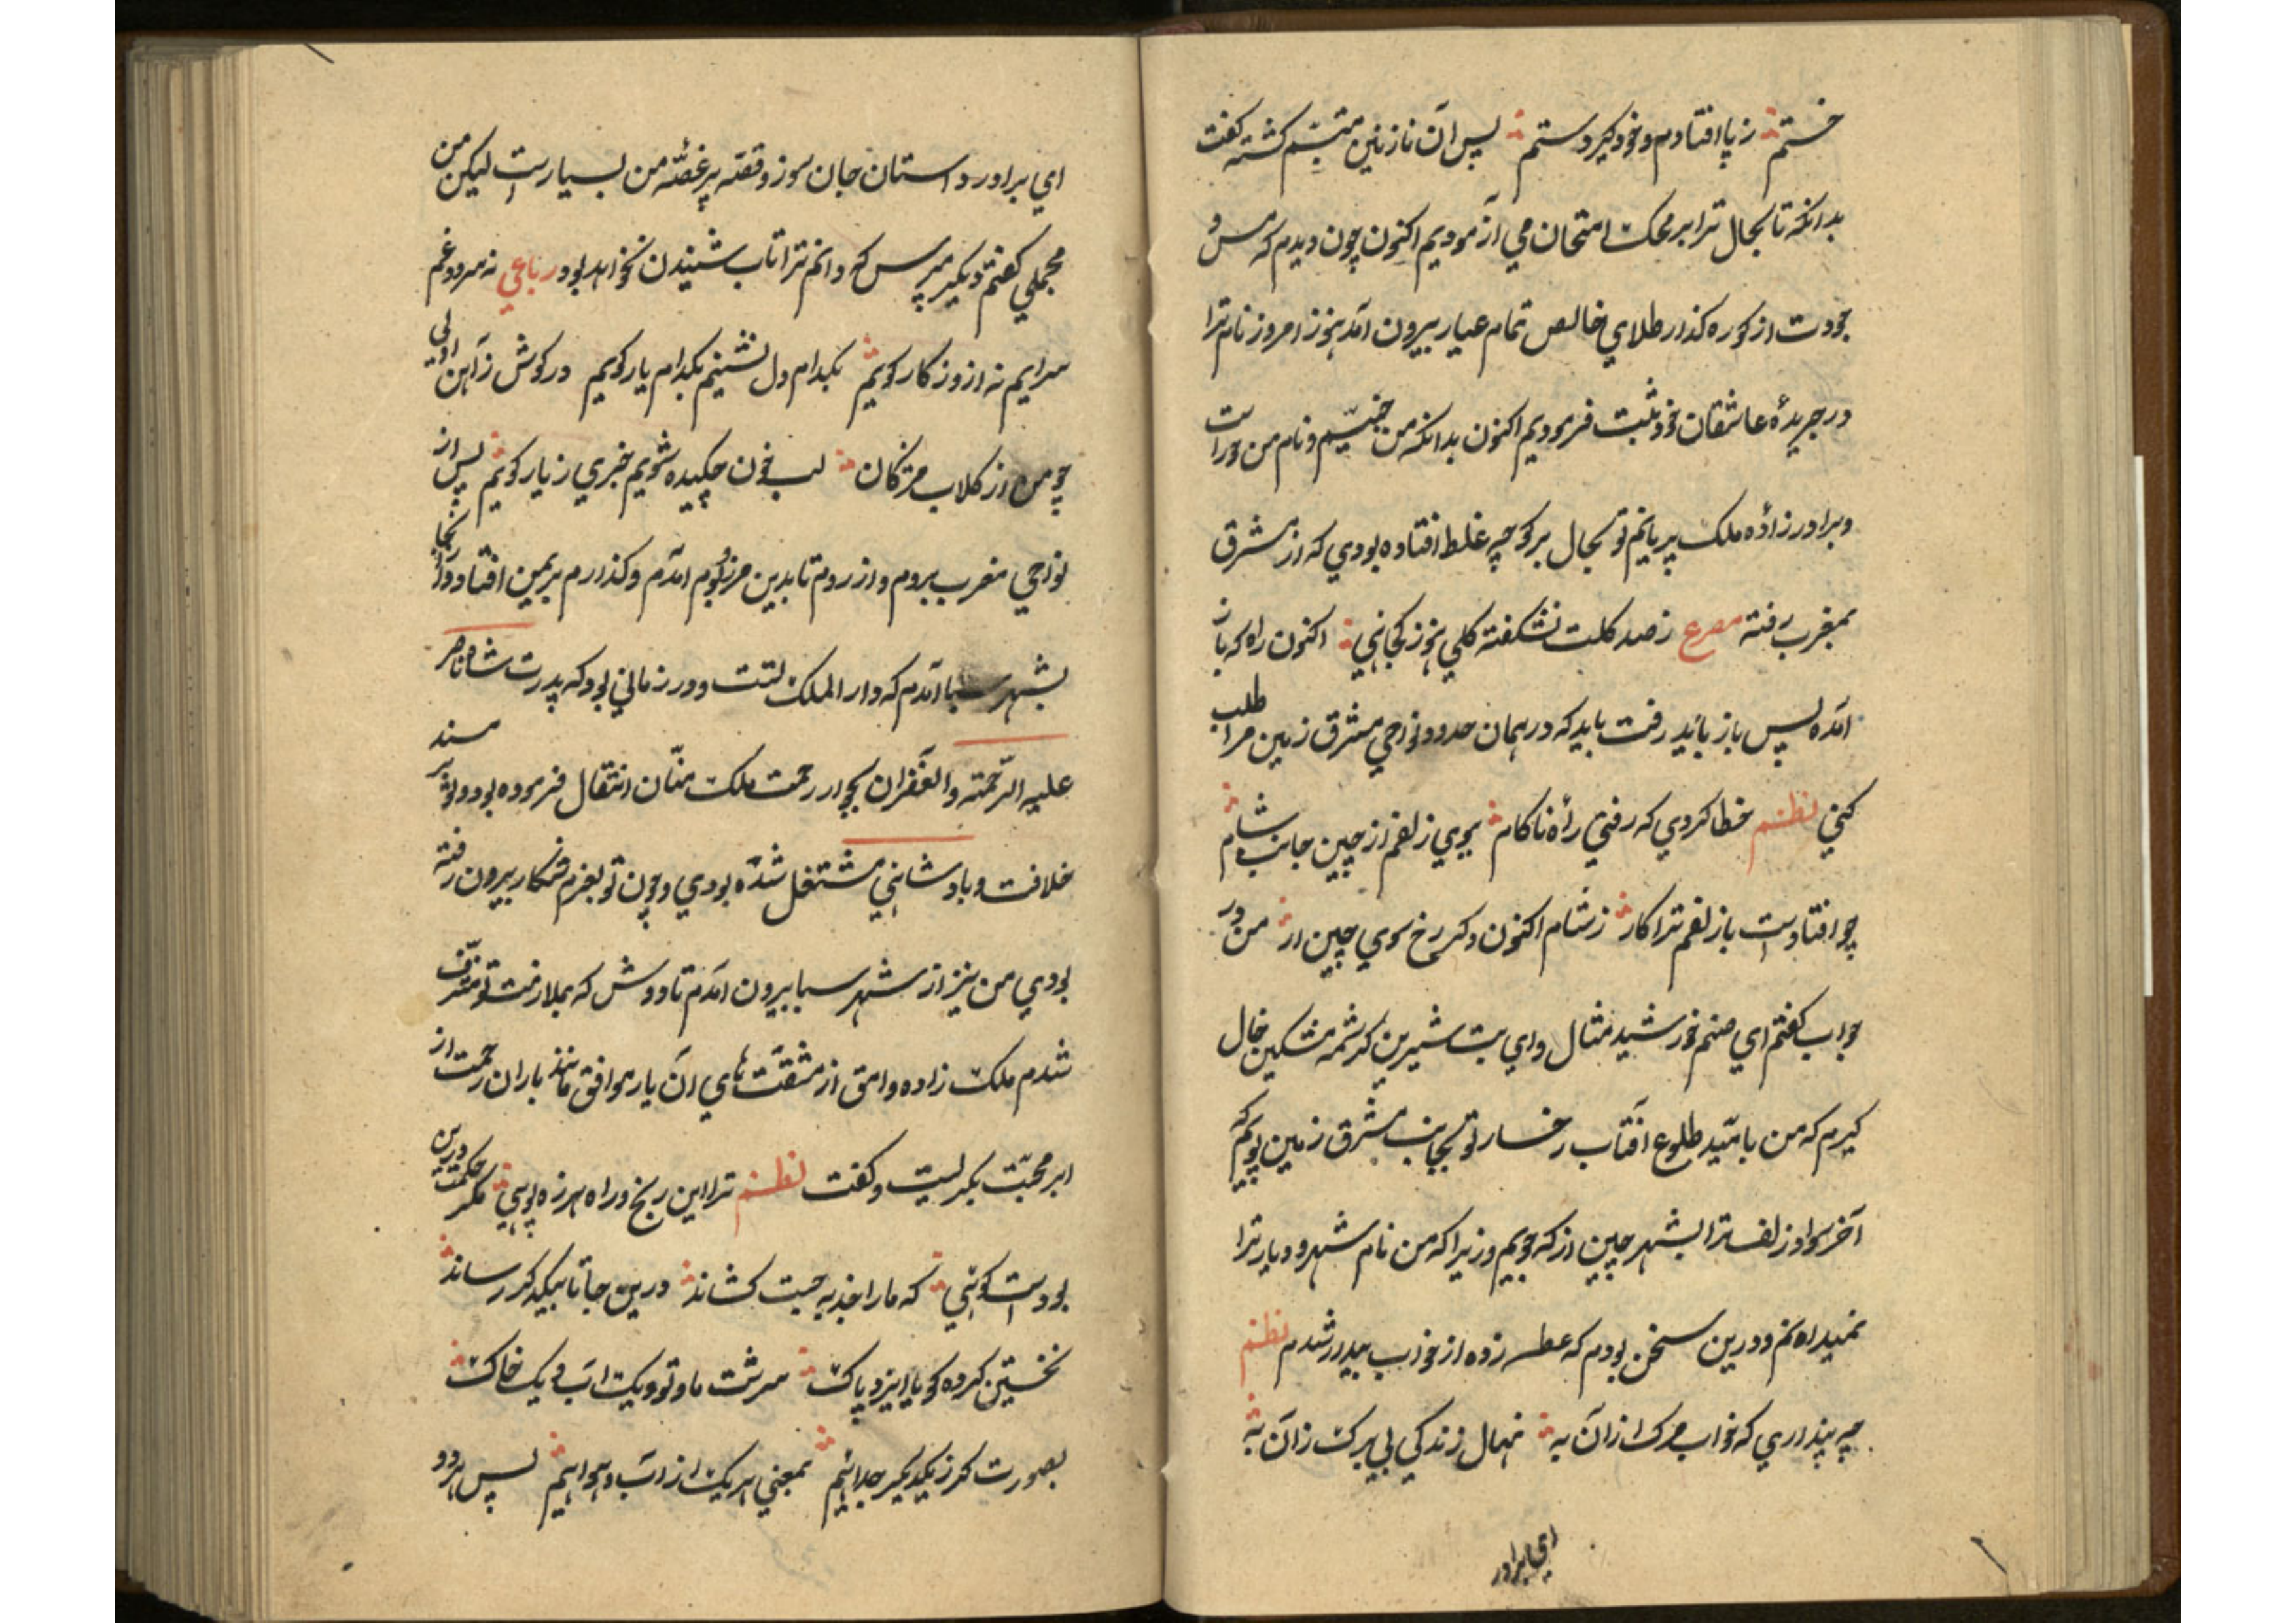 خستم ز پا افتادم و خود کیر دستم پس آن نازنین متبسّم کشته کفت
بدانکه تا بحال ترا بر محک امتحان می آزمودیم اکنون چون دیدم که مس و
جودت از کوره کذار طلای خالص تمام عیار بیرون آمد هنوز امروز نام ترا
در جریدهٔ عاشقان خود ثبت فرمودیم اکنون بدانکه من جنیّم و نام من حوراست
و برادرزاده ملک پریانم تو بحال برکو چه غلط افتاده بودی که از مشرق
بمغرب رفته مصرع ز صد کلت نشکفته کلی هنوز کجائی اکنون راه که باز
آمده پس باز باید رفت باید که در همان حدود نواحی مشرق زمین مرا طلب
کنی نظم خطا کردی که رفتی راه ناکام بوی زلفم از چین جانب شام
چو افتادست با زلفم ترا کار ز شام اکنون دکر رخ سوی چین آر من در
جواب کفتم ای صنم خورشید مثال و ای بت شیرین کرشمه مشکین خال
کیرم که من بامید طلوع آفتاب رخسار تو بجانب مشرق زمین پویم که
آخر سواد زلف ترا بشهر چین از که جویم و زیرا که من نام شهر و دیار ترا
نمیدانم و درین سخن بودم که عطسه زده از خواب بیدار شدم نظم
چه پنداری که خواب مرک از آن به نهال زندکی بی برک ز آن به
ای برادر
ای برادر داستان جان سوز و قصّه پر غصّه من بسیارست لیکن من
مجملی کفتم دیکر مپرس که دانم ترا تاب شنیدن نخواهد بود رباعی نه سرود غم
سرایم نه از روزکار کویم بکدام دل نشینم بکدام یار کویم در کوش ز آهن اولی
چو من از کلاب مژکان لب خون چکیده شویم خبری ز یار کویم پس از
نواحی مغرب بروم و از روم تا بدین مرز و بوم آمدم و کذارم بر یمن افتاد و از آنجا
بشهر سبا آمدم که دار الملک تست و در زمانی بود که پدرت شاه ناصر
علیه الرّحمته و الغفران بجوار رحمت ملک منّان انتقال فرموده بود و تو بر مسند
خلافت و بادشاهی مشتغل شده بودی و چون تو بعزم شکار بیرون رفته
بودی من نیز از شهر سبا بیرون آمدم تا دوش که بملازمت تو مشرّف
شدم ملک زاده وامق از مشقّت های آن یار موافق مانند باران رحمت از
ابر محبّت بکریست و کفت نظم ترا این رنج و راه هرزه پوئی مکر حکمت درین
بودست کوئی که ما را جذبه حبت کشاند درین جا تا بیکدکر رساند
نخستین کرده کویا ایزد پاک سرشت ما و تو و یک آب و یک خاک
بصورت کر ز یکدیکر جدائیم بمعنی هر یک از آب و هوائیم پس هر دو